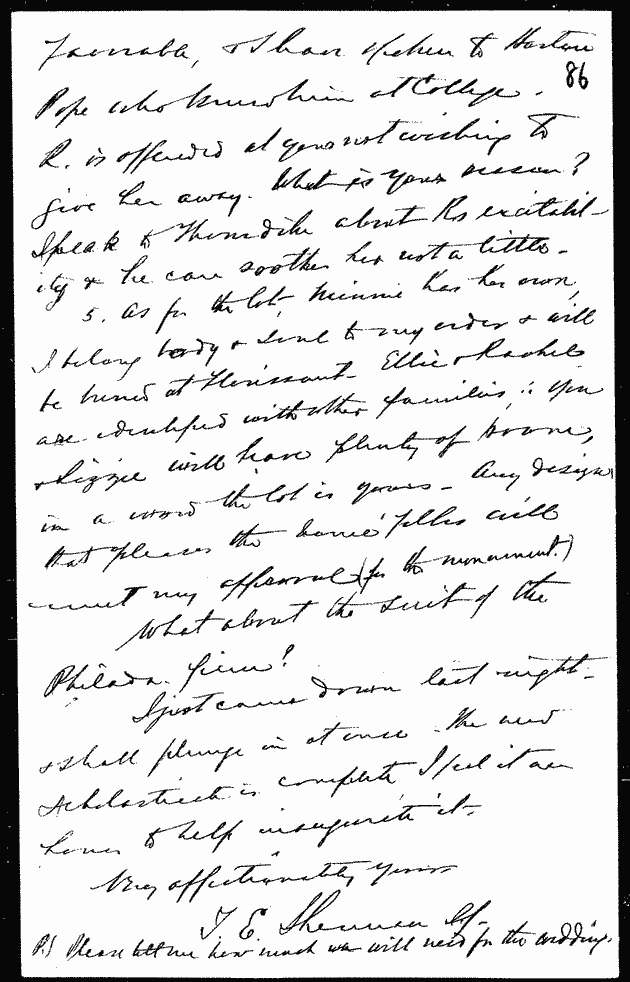 Favorable, & I have spoken to Horton
86
Pope who knew him at College.
R. is offended at your not wishing to
give her away. What is your reason?
Speak to Thorndike about R's excitabil-
ity & he can soothe her not a little.
5. As for the lot, Minnie has her own,
I belong body & soul to my order & will
be buried at Florissant. Ellie & Rachel
are identified with other families, : you
& Lizzie will have plenty of room,
in a word the lot is yours. Any design
that pleases the home folks will
meet my approval (for the monument.)
What about the suit of the
Philada. firm?
I just came down last night
& shall plunge in at once. The new
scholasticate is complete I feel it an
honor to help inaugurate it.
Very affectionately yours
T. E. Sherman SJ.
P.S Please tell me how much we will need for the wedding.